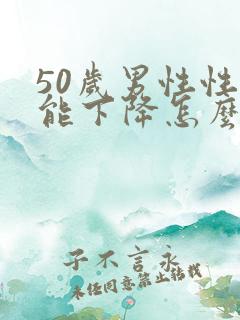 50歲男性性
能下降怎麼
子不言永
未任同意禁止转载